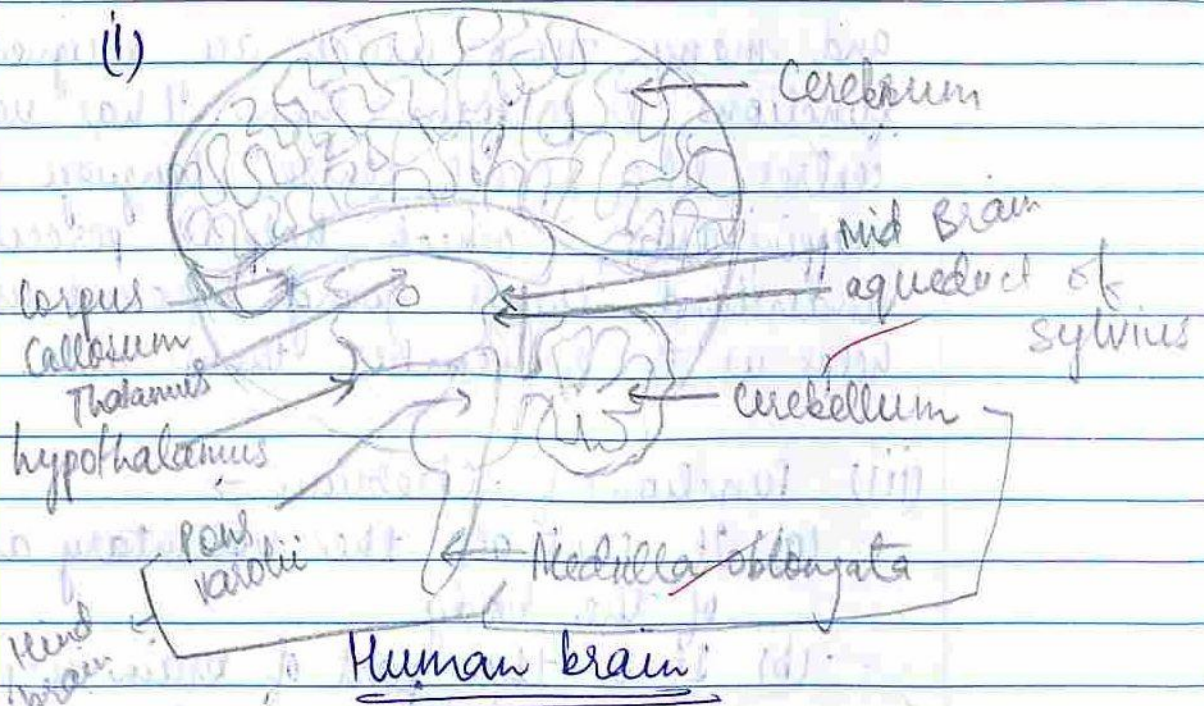 (i)
Cerebrum
Mid Brain
aqueduct of
Sylvius
Corpus
Callosum
Thalamus
hypothalamus
Cerebellum
Pons
Varolii
Medulla oblongata
Hind
brain
Human brain